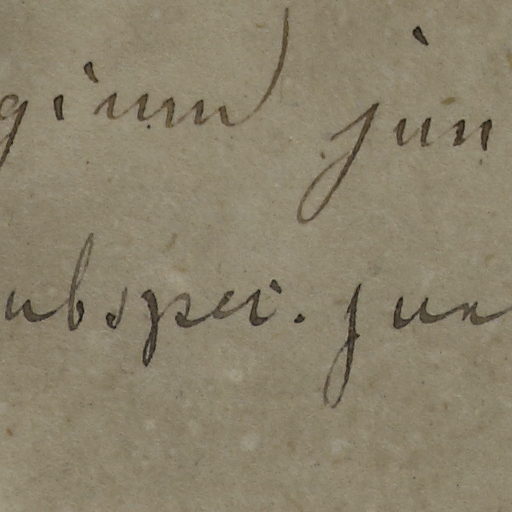 gium jun
ubspec. jun